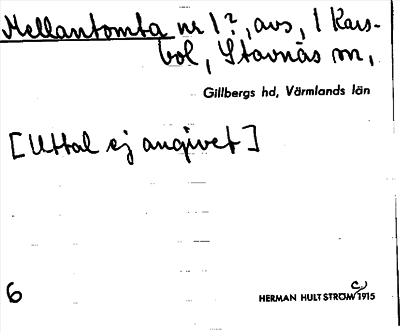 Mellantomta nr 1?, avs, 1 Kars-
bol, Stavnäs sn,
Gillbergs hd, Värmlands län
[Uttal ej angivet]
6
HERMAN HULTSTRÖM 1915